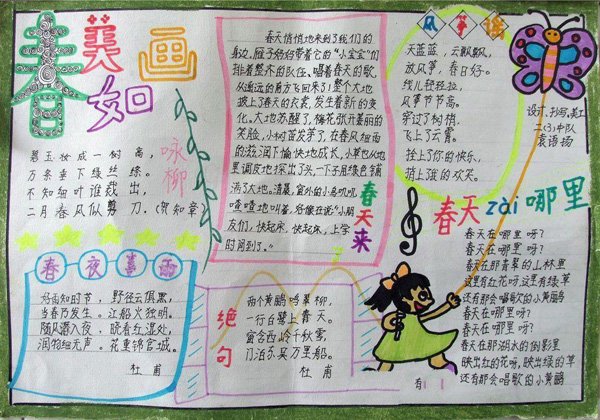 春美如画
咏柳
碧玉妆成一树高,
万条垂下绿丝绦。
不知细叶谁裁出,
二月春风似剪刀。(贺知章)
春夜喜雨
好雨知时节,野径云俱黑,
当春乃发生。江船火独明。
随风潜入夜,晓看红湿处,
润物细无声。花重锦官城。
杜甫
春天来
春天悄悄地来到了我们的
身边。雁子妈妈带着它的“小宝宝”们
排着整齐的队伍,唱着春天的歌,
从遥远的南方飞回来了!整个大地
披上了春天的衣裳,发生着新的变
化。大地苏醒了,梅花张开美丽的
笑脸,小树苗发芽了,在春风细雨
的滋润下愉快地成长,小草也从地
里调皮地探出了头,一下子用绿色铺
满了大地。清晨,窗外的小鸟叽叽
喳喳地叫着,好像在说“小朋
友们,快起床,快起床,上学
时间到了。”
绝句
两个黄鹂鸣翠柳,
一行白鹭上青天。
窗含西岭千秋雪,
门泊东吴万里船。
杜甫
风筝谣
天蓝蓝,云飘飘,
放风筝,春日好。
线儿轻轻拉,
风筝节节高。
穿过了树梢,
飞上了云霄。
拴上了你的快乐,
捎上我的欢笑。
设计、抄写、美工
二(3)中队
袁语扬
春天zài哪里
春天在哪里呀?
春天在哪里呀?
春天在那青翠的山林里
这里有红花呀这里有绿草
还有那会唱歌的小黄鹂
春天在哪里呀?
春天在哪里呀?
春天在那湖水的倒影里
映出红的花呀,映出绿的草
还有那会唱歌的小黄鹂
有